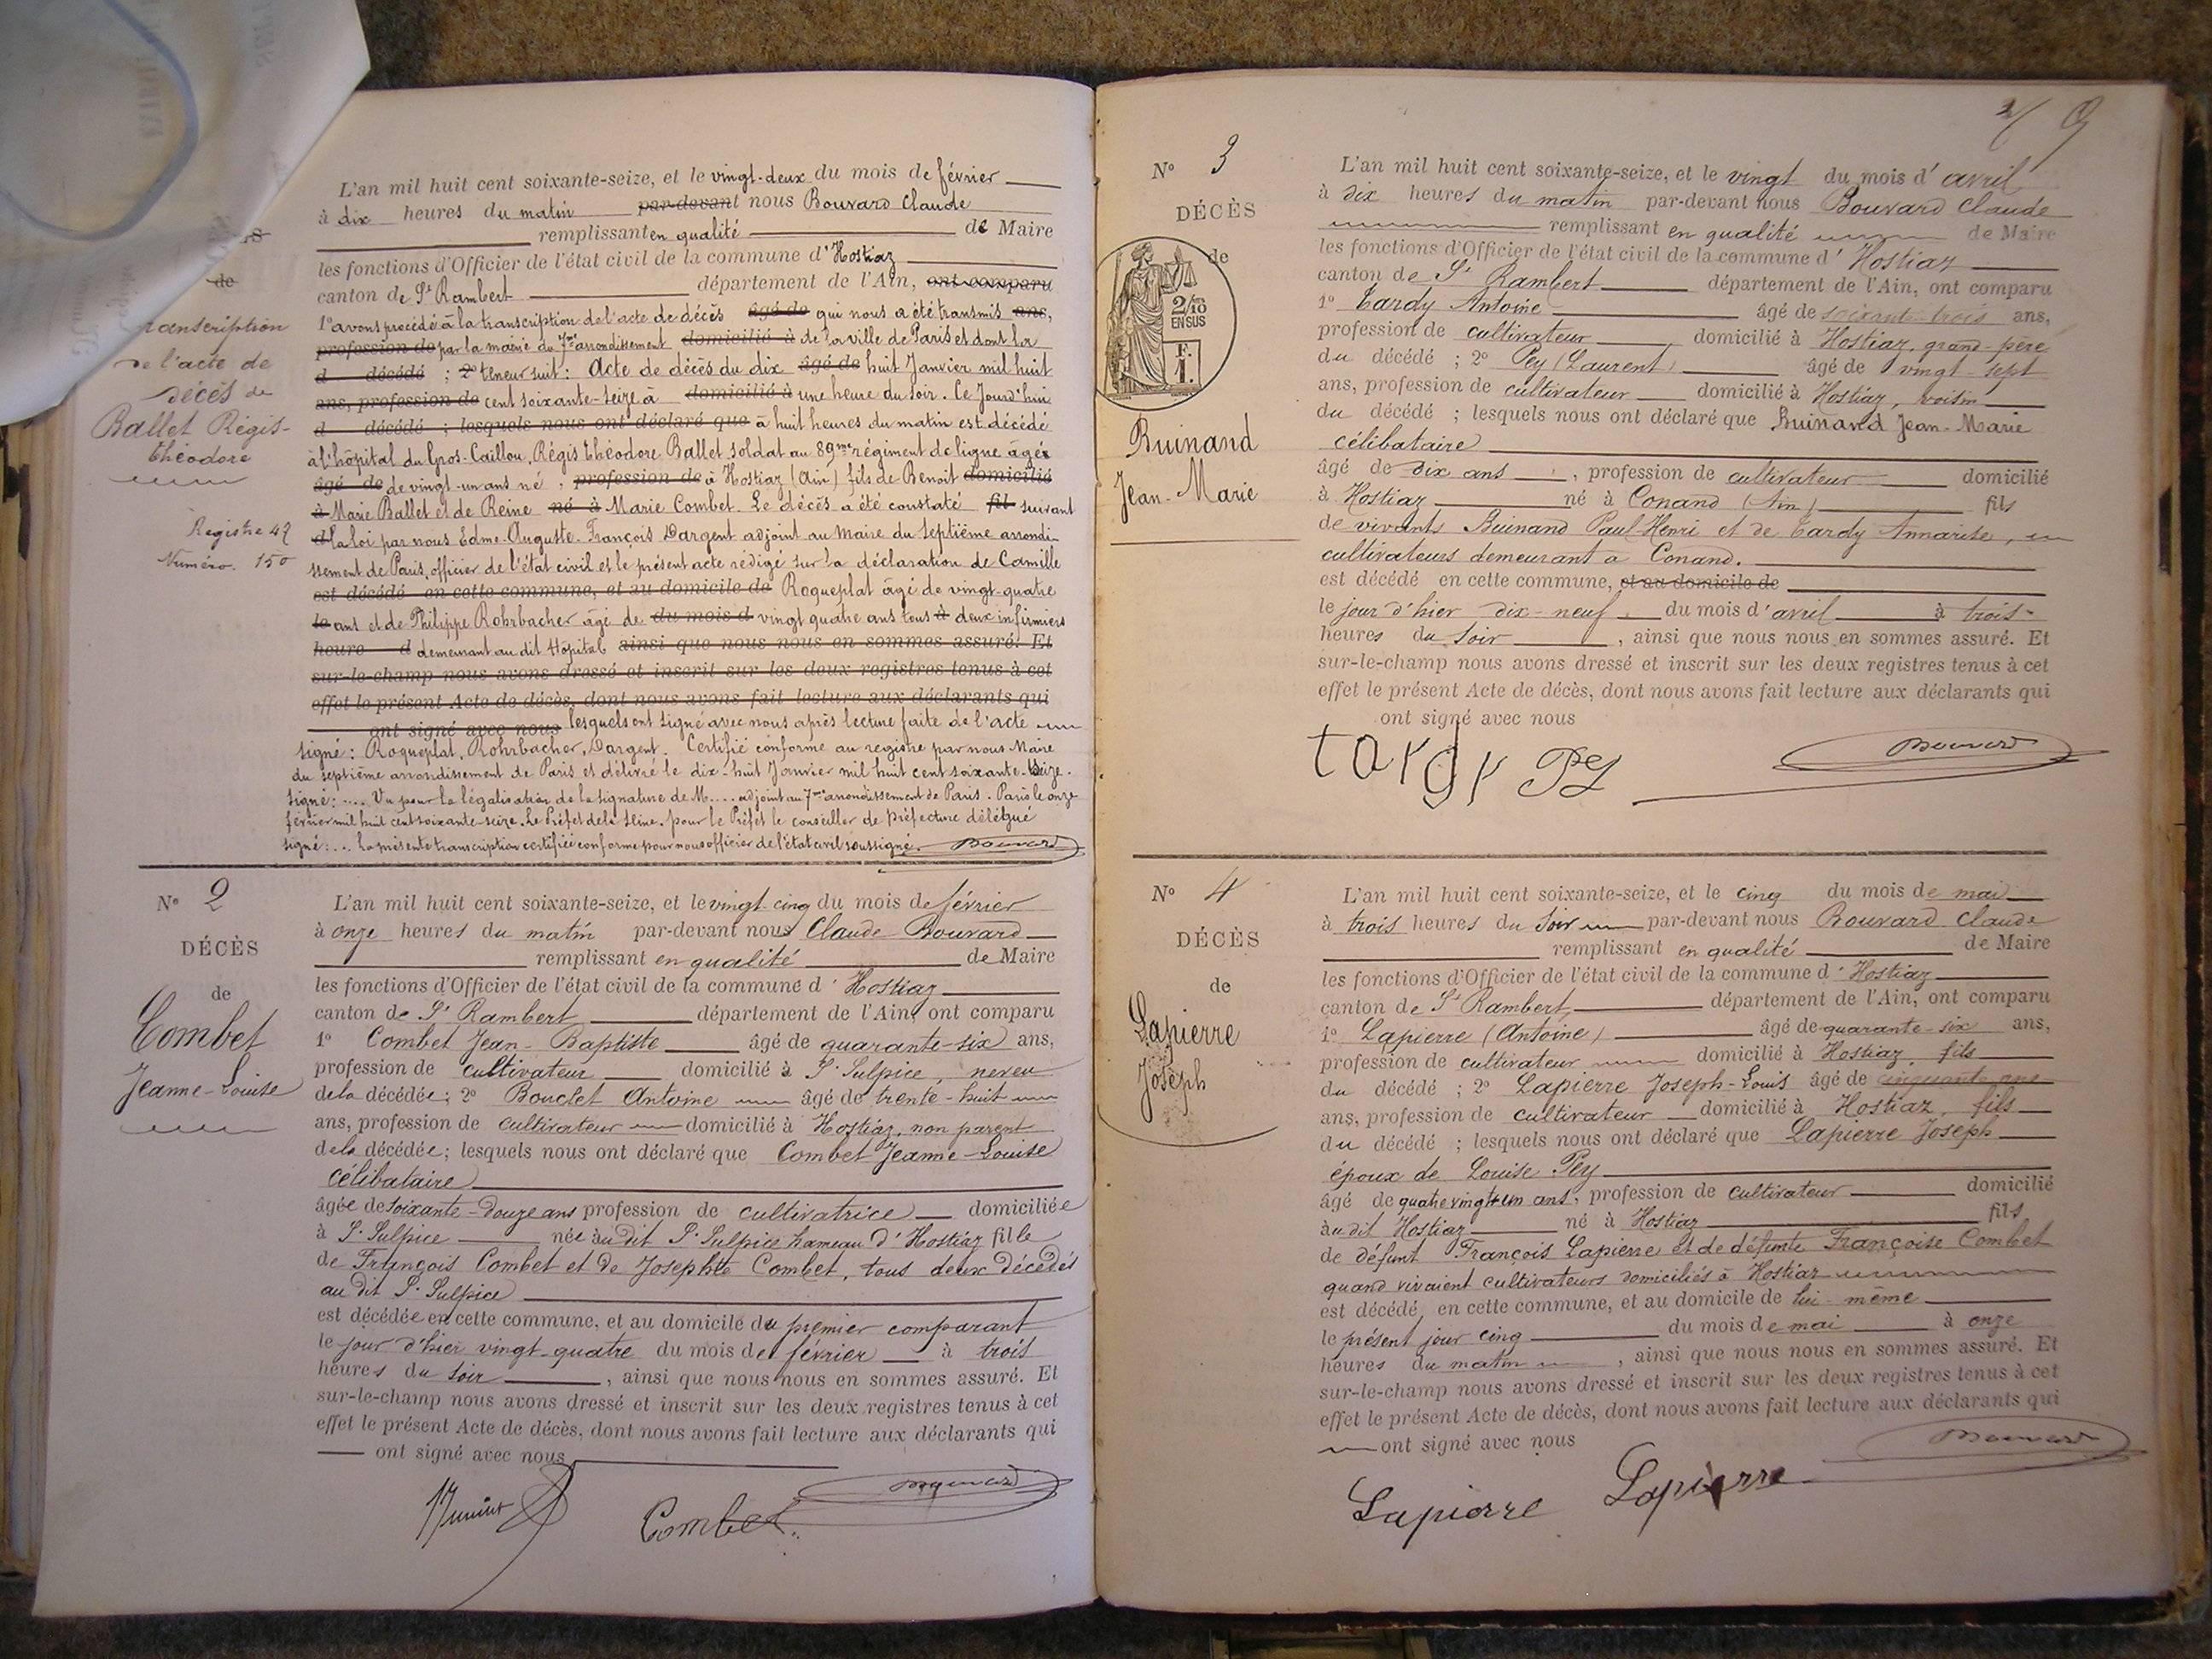 de
transcription
de l'acte de
décès de
Ballet Régis-
théodore
Registre 42
Numéro. 150
L'an mil huit cent soixante-seize, et le vingt-deux du mois de février
à dix heures du matin par-devant nous Bouvard Claude
remplissant en qualité de Maire
les fonctions d'Officier de l'état civil de la commune d'Hostiaz
canton de St Rambert département de l'Ain, ont comparu
1° avons procédé à la transcription de l'acte de décès âgé de qui nous a été transmis ans,
profession de par la mairie du 7me arrondissement domicilié à de la ville de Paris et dont la
d décédé ; 2° teneur suit : Acte de décès du dix âgé de huit Janvier mil huit
ans, profession de cent soixante-seize à domicilié à une heure du soir. Ce Jourd'hui
d décédé ; lesquels nous ont déclaré que à huit heures du matin est décédé
à l'hôpital du Gros-Caillou, Régis Théodore Ballet soldat au 89me régiment de ligne âgé
âgé de de vingt-un ans né , profession de à Hostiaz (Ain) fils de Benoit domicilié
à Marie Ballet et de Reine né à Marie Combet. Le décès a été constaté fil suivant
d la loi par nous Edme-Auguste-François Dargent adjoint au Maire du Septième arrondi-
ssement de Paris, officier de l'état civil et le présent acte rédigé sur la déclaration de Camille
est décédé en cette commune, et au domicile de Roqueplat âgé de vingt-quatre
le ans et de Philippe Rohrbacher âgé de du mois d vingt quatre ans tous à deux infirmiers
heure d demeurant au dit Hôpital ainsi que nous nous en sommes assuré. Et
sur-le-champ nous avons dressé et inscrit sur les deux registres tenus à cet
effet le présent Acte de décès, dont nous avons fait lecture aux déclarants qui
ont signé avec nous lesquels ont signé avec nous après lecture faite de l'acte
signé : Roqueplat, Rohrbacher, Dargent. Certifié conforme au registre par nous Maire
du septième arrondissement de Paris et délivré le dix-huit Janvier mil huit cent soixante-seize.
Signé : .... Vu pour la légalisation de la signature de M.... adjoint au 7me arrondissement de Paris. Paris le onze
février mil huit cent soixante-seize. Le Préfet de la Seine. pour le Préfet le conseiller de Préfecture délégué
signé : .. la présente transcription certifiée conforme pour nous officier de l'état civil soussigné. Bouvard
N° 2
DÉCÈS
de
Combet
Jeanne-Louise
L'an mil huit cent soixante-seize, et le vingt-cinq du mois de février
à onze heures du matin par-devant nous Claude Bouvard
remplissant en qualité de Maire
les fonctions d'Officier de l'état civil de la commune d'Hostiaz
canton de St Rambert département de l'Ain, ont comparu
1° Combet Jean-Baptiste âgé de quarante-six ans,
profession de cultivateur domicilié à St Sulpice, neveu
de la décédée ; 2° Bouclet Antoine âgé de trente-huit
ans, profession de cultivateur domicilié à Hostiaz, non parent
de la décédée ; lesquels nous ont déclaré que Combet Jeanne-Louise
célibataire
âgée de soixante-douze ans profession de cultivatrice domiciliée
à St Sulpice née au dit St Sulpice hameau d'Hostiaz fille
de François Combet et de Josephte Combet, tous deux décédés
au dit St Sulpice
est décédée en cette commune, et au domicile du premier comparant
le jour d'hier vingt-quatre du mois de février à trois
heures du soir , ainsi que nous nous en sommes assuré. Et
sur-le-champ nous avons dressé et inscrit sur les deux registres tenus à cet
effet le présent Acte de décès, dont nous avons fait lecture aux déclarants qui
ont signé avec nous
Combet Bouvard
N° 3
DÉCÈS
de
2/10
EN SUS
F.
1.
Buinand
Jean-Marie
L'an mil huit cent soixante-seize, et le vingt du mois d'avril
à dix heures du matin par-devant nous Bouvard Claude
remplissant en qualité de Maire
les fonctions d'Officier de l'état civil de la commune d'Hostiaz
canton de St Rambert département de l'Ain, ont comparu
1° Tardy Antoine âgé de soixant-trois ans,
profession de cultivateur domicilié à Hostiaz, grand-père
du décédé ; 2° Pey (Laurent) âgé de vingt-sept
ans, profession de cultivateur domicilié à Hostiaz, voisin
du décédé ; lesquels nous ont déclaré que Buinand Jean-Marie
célibataire
âgé de dix ans , profession de cultivateur domicilié
à Hostiaz né à Conand (Ain) fils
de vivants Buinand Paul-Henri et de Tardy Annarite,
cultivateurs demeurant a Conand.
est décédé en cette commune, et au domicile de
le jour d'hier dix-neuf du mois d'avril à trois
heures du soir , ainsi que nous nous en sommes assuré. Et
sur-le-champ nous avons dressé et inscrit sur les deux registres tenus à cet
effet le présent Acte de décès, dont nous avons fait lecture aux déclarants qui
ont signé avec nous
tardy Bouvard
N° 4
DÉCÈS
de
Lapierre
Joseph
L'an mil huit cent soixante-seize, et le cinq du mois de mai
à trois heures du soir par-devant nous Bouvard Claude
remplissant en qualité de Maire
les fonctions d'Officier de l'état civil de la commune d'Hostiaz
canton de St Rambert, département de l'Ain, ont comparu
1° Lapierre (Antoine) âgé de quarante-six ans,
profession de cultivateur domicilié à Hostiaz, fils
du décédé ; 2° Lapierre Joseph-Louis âgé de cinquante ans
ans, profession de cultivateur domicilié à Hostiaz, fils
du décédé ; lesquels nous ont déclaré que Lapierre Joseph
époux de Louise Pey
âgé de quatrevingt-un ans, profession de cultivateur domicilié
au dit Hostiaz né à Hostiaz fils
de défunt François Lapierre et de défunte Françoise Combet
quand vivaient cultivateurs domiciliés à Hostiaz
est décédé, en cette commune, et au domicile de lui-même
le présent jour cinq du mois de mai à onze
heures du matin , ainsi que nous nous en sommes assuré. Et
sur-le-champ nous avons dressé et inscrit sur les deux registres tenus à cet
effet le présent Acte de décès, dont nous avons fait lecture aux déclarants qui
ont signé avec nous
Bouvard
Lapierre Lapierre